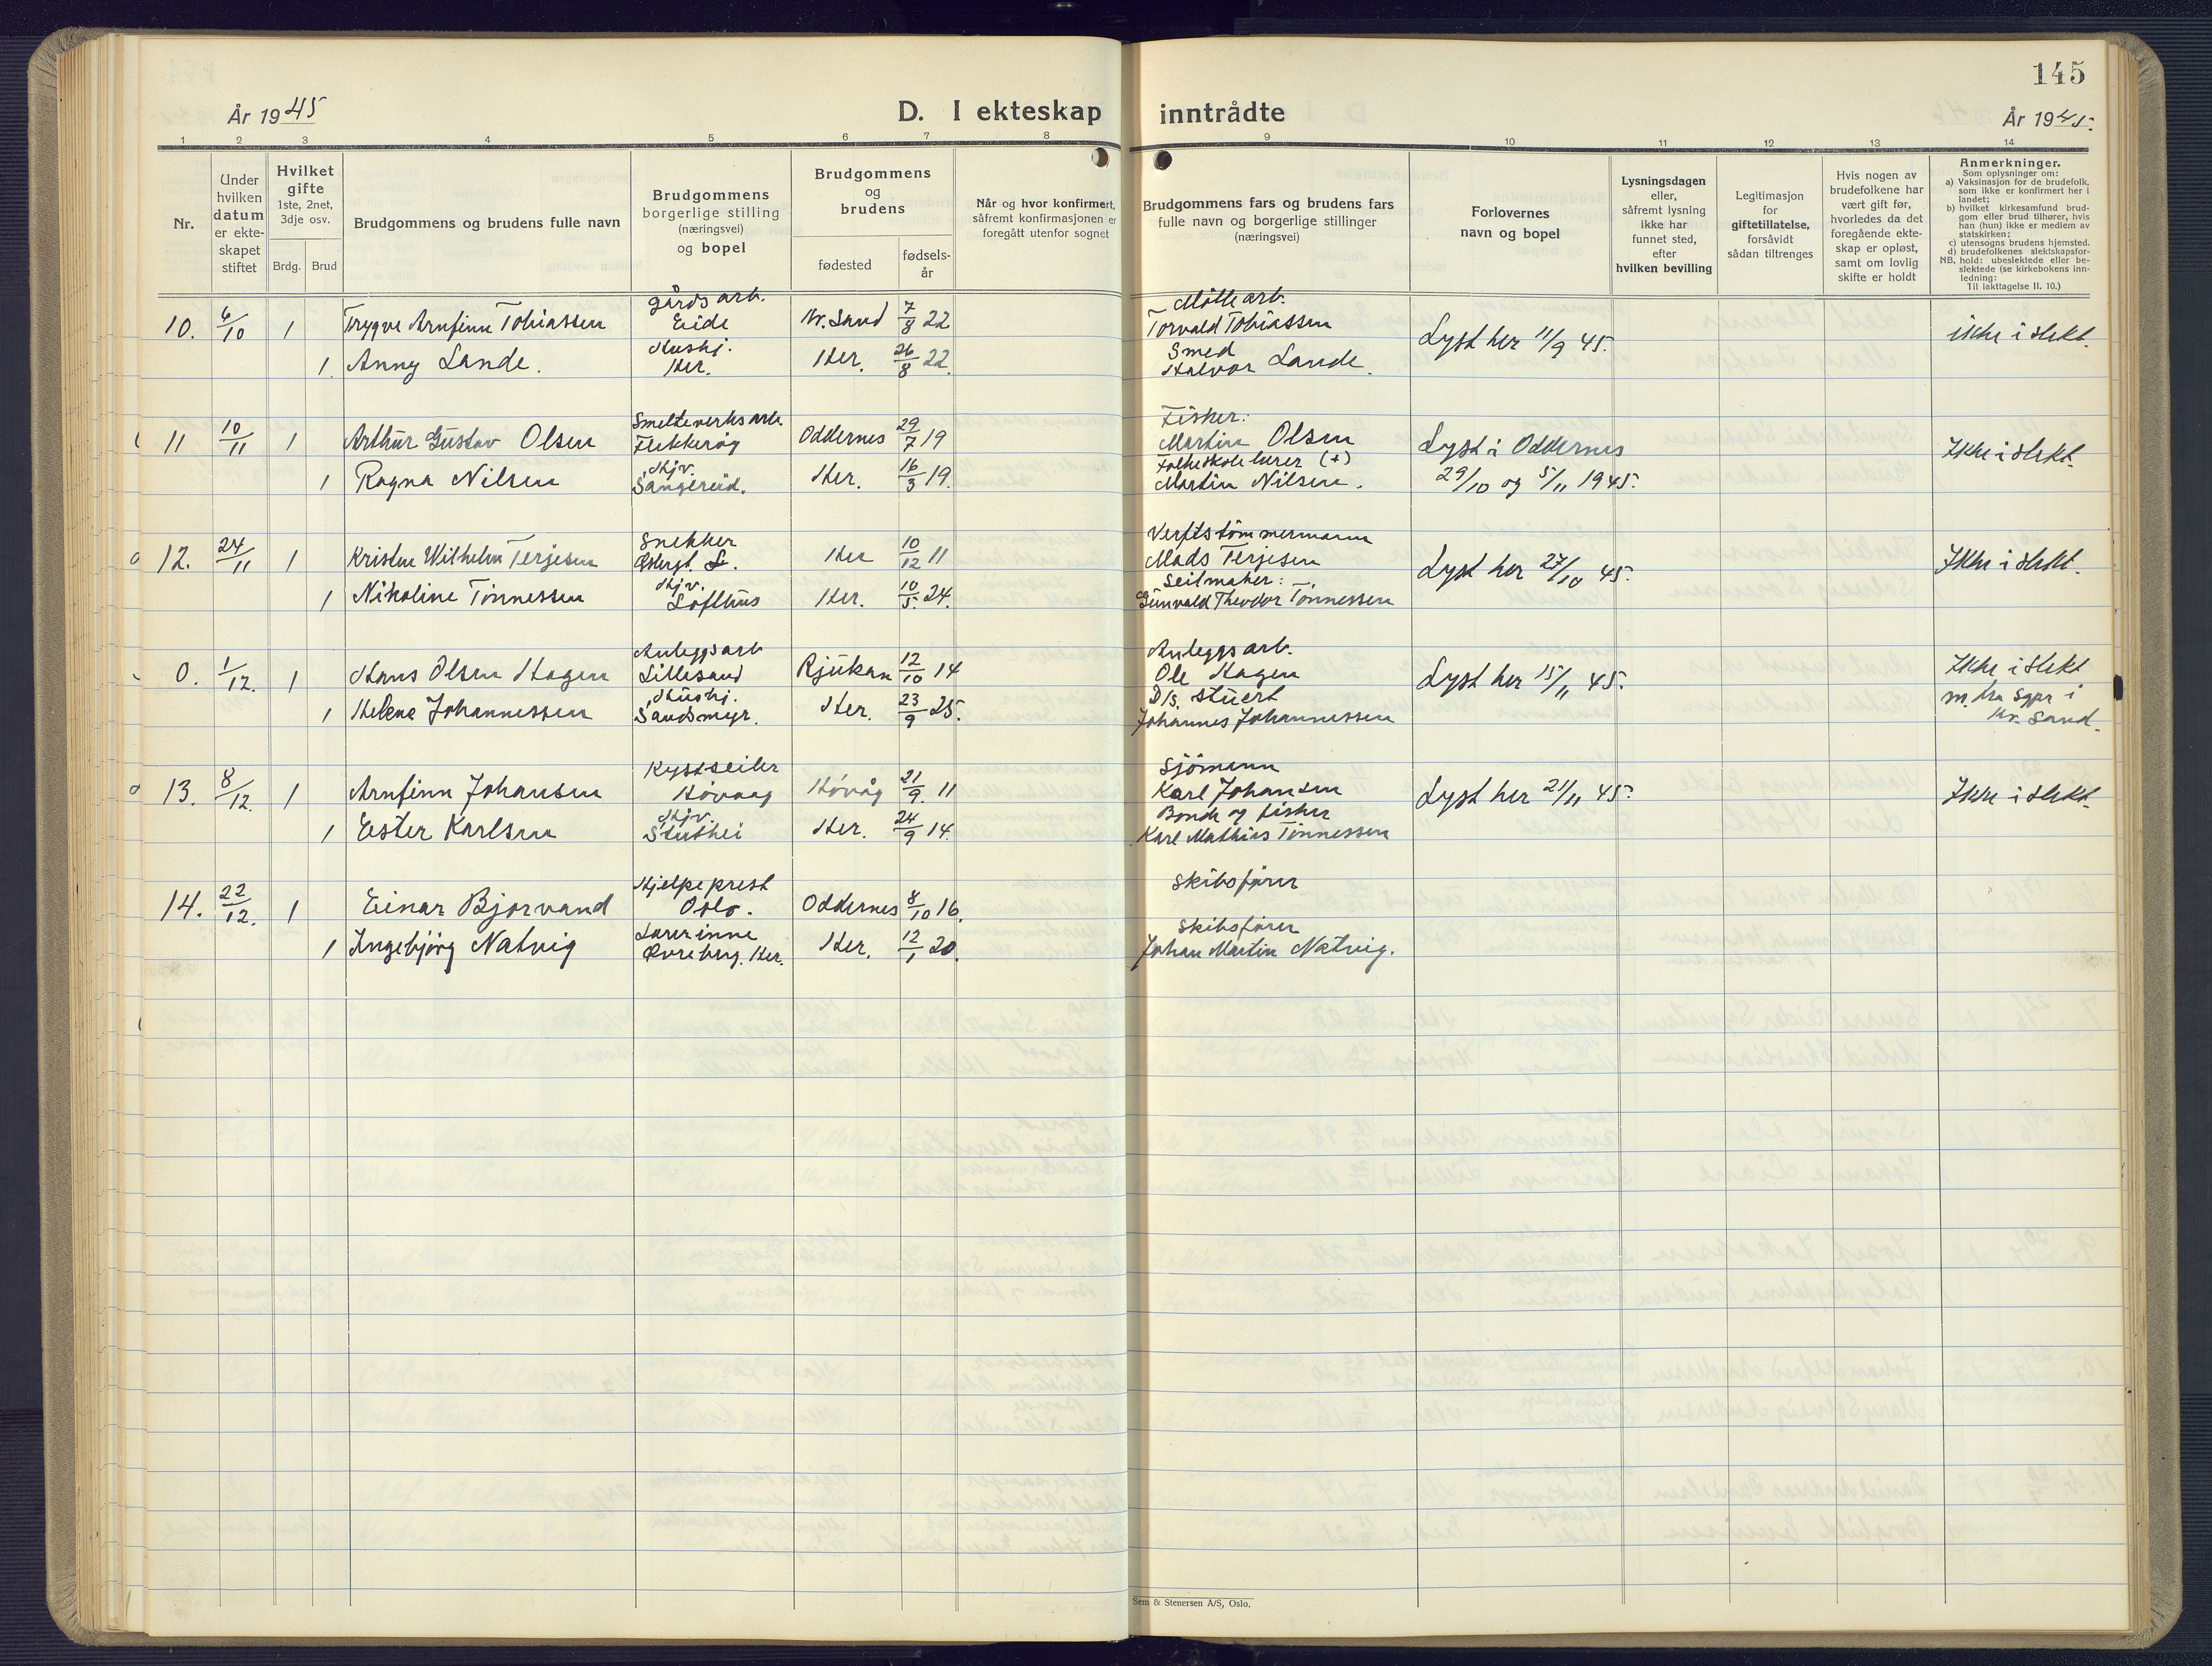 145
År 1945
D. I ekteskap inntrådte
År 1945.
1 2 3 4 5 6 7 8 9 10 11 12 13 14
Nr.
Under hvilken datum er ekteskapet stiftet
Hvilket gifte 1ste, 2net, 3dje osv.
Brdg. Brud
Brudgommens og brudens fulle navn
Brudgommens borgerlige stilling (næringsvei) og bopel
Brudgommens og brudens
fødested
fødselsår
Når og hvor konfirmert, såfremt konfirmasjonen er foregått utenfor sognet
Brudgommens fars og brudens fars fulle navn og borgerlige stillinger (næringsvei)
Forlovernes navn og bopel
Lysningsdagen eller, såfremt lysning ikke har funnet sted, efter hvilken bevilling
Legitimasjon for giftetillatelse, forsåvidt sådan tiltrenges
Hvis nogen av brudefolkene har vært gift før, hvorledes da det foregående ekteskap er opløst, samt om lovlig skifte er holdt
Anmerkninger.
Som oplysninger om:
a) Vaksinasjon for de brudefolk, som ikke er konfirmert her i landet;
b) hvilket kirkesamfund brudgom eller brud tilhører, hvis han (hun) ikke er medlem av statskirken;
c) utensogns brudens hjemsted.
d) brudefolkenes slektskapsforhold: ubeslektede eller beslektede (se kirkebokens innledning:
NB.
Til iakttagelse II. 10.)
gårdsarb. Mølle arb.
10. 6/10 1 Trygve Arnfinn Tobiassen Eide Kr.sand 7/8 22 Torvald Tobiassen Lyst her 11/9 45. ikke i slekt.
Hushj. Smed
1. Anny Lande. Her. Her. 26/8 22. Halvor Lande.
Smelteverksarb. Fisker:
11 10/11 1 Arthur Gustav Olsen Flekkerøy Oddernes 29/7 19 Martin Olsen Lyst i Oddernes Ikke i slekt.
Hjv. Folkeskolelærer (+)
1 Ragna Nilsen Sangereid. Her. 16/3 19. Martin Nilsen. 29/10 og 5/11 1945.
Snekker Verftstømmermann
12. 24/11 1 Kristen Wilhelm Terjesen Østergt. L. Her 10/12 11 Mads Terjesen Lyst her 27/10 45. Ikke i slekt.
Hjv. Seilmaker:
1 Nikoline Tønnessen Lofthus Her. 10/5. 24. Gunvald Theodor Tønnessen
Anleggsarb Anleggsarb.
0. 1/12. 1 Hans Olsen Hagen Lillesand Rjukan 12/10 14 Ole Hagen Lyst her 15/11 45. Ikke i slekt
Hushj. D/s. stuert
1 Helene Johannessen Sandsmyr. Her. 23/9 25. Johannes Johannessen m. fra sgpr i Kr. Sand.
Kystseiler Sjømann
13. 8/12. 1 Arnfinn Johansen Høvaag Høvåg 21/9. 11 Karl Johansen Lyst her 21/11 45. Ikke i slekt.
Hjv. Bonde og fisker
1 Ester Karlsen Her. 24/9 14. Karl Mathias Tønnessen
Hjelpeprest Skibsfører
14. 22/12. 1 Einar Bjorvand Oslo. Oddernes 8/10 16.
Lærerinne Skibsfører
1 Ingebjörg Natvig Øvreberg. Her. Her. 12/1 20. Johan Martin Natvig.
Sem & Stenersen A/S, Oslo.